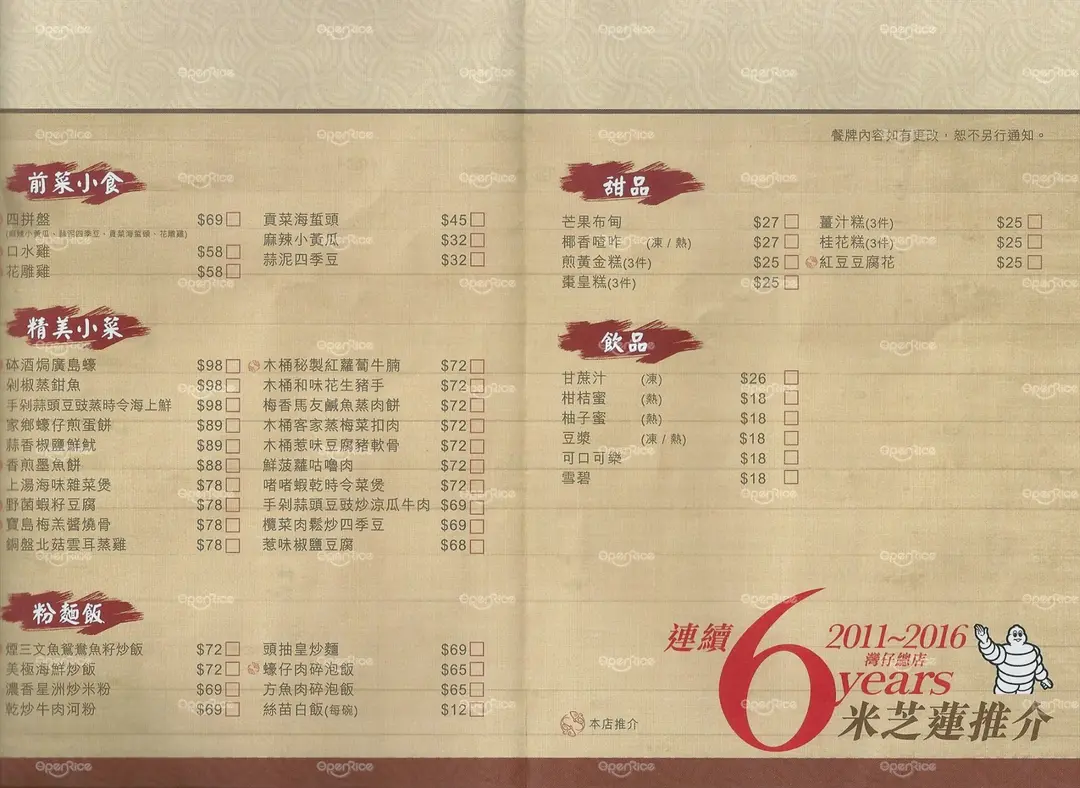 餐牌內容如有更改，恕不另行通知。
前菜小食
四拼盤 $69
(麻辣小黃瓜、蒜泥四季豆、貢菜海蜇頭、花雕雞)
口水雞 $58
花雕雞 $58
貢菜海蜇頭 $45
麻辣小黃瓜 $32
蒜泥四季豆 $32
精美小菜
砵酒焗廣島蠔 $98
剁椒蒸鉗魚 $98
手剁蒜頭豆豉蒸時令海上鮮 $98
家鄉蠔仔煎蛋餅 $89
蒜香椒鹽鮮魷 $89
香煎墨魚餅 $88
上湯海味雜菜煲 $78
野菌蝦籽豆腐 $78
寶島梅羔醬燒骨 $78
銅盤北菇雲耳蒸雞 $78
木桶秘製紅蘿蔔牛腩 $72
木桶和味花生豬手 $72
梅香馬友鹹魚蒸肉餅 $72
木桶客家蒸梅菜扣肉 $72
木桶惹味豆腐豬軟骨 $72
鮮菠蘿咕嚕肉 $72
啫啫蝦乾時令菜煲 $72
手剁蒜頭豆豉炒涼瓜牛肉 $69
欖菜肉鬆炒四季豆 $69
惹味椒鹽豆腐 $68
粉麵飯
煙三文魚鴛鴦魚籽炒飯 $72
美極海鮮炒飯 $72
濃香星洲炒米粉 $69
乾炒牛肉河粉 $69
頭抽皇炒麵 $69
蠔仔肉碎泡飯 $65
方魚肉碎泡飯 $65
絲苗白飯(每碗) $12
甜品
芒果布甸 $27
椰香喳咋 (凍 / 熱) $27
煎黃金糕(3件) $25
棗皇糕(3件) $25
薑汁糕(3件) $25
桂花糕(3件) $25
紅豆豆腐花 $25
飲品
甘蔗汁 (凍) $26
柑桔蜜 (熱) $18
柚子蜜 (熱) $18
豆漿 (凍 / 熱) $18
可口可樂 $18
雪碧 $18
本店推介
連續 6 years
2011~2016
灣仔總店
米芝蓮推介
OpenRice